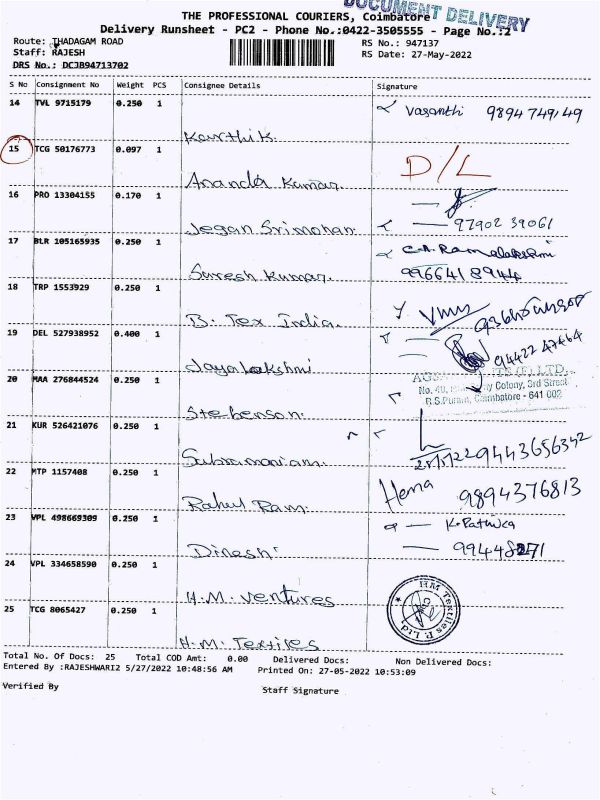 THE PROFESSIONAL COURIERS, Coimbatore
DOCUMENT DELIVERY
Delivery Runsheet - PC2 - Phone No.:0422-3505555 - Page No.:2
Route: THADAGAM ROAD
RS No.: 947137
Staff: RAJESH
RS Date: 27-May-2022
DRS No.: DCJB94713702
S No Consignment No Weight PCS Consignee Details Signature
14 TVL 9715179 0.250 1 Karthik. Vasanthi 9894749149
15 TCG 50176773 0.097 1 Ananda Kumar. D/L
16 PRO 13304155 0.170 1 Jegan Srimohan. 97902 39061
17 BLR 105165935 0.250 1 Suresh Kumar. 9966418944
18 TRP 1553929 0.250 1 B. Tex India.
19 DEL 527938952 0.400 1 Jayalakshmi 94422 47464
20 MAA 276844524 0.250 1 Stebenson.
No. 40, Colony, 3rd Street
R.S.Puram, Coimbatore - 641 002
21 KUR 526421076 0.250 1 Subramaniam 9443656342
22 MTP 1157408 0.250 1 Rahul Ram. Hema 9894376813
23 VPL 498669309 0.250 1 Dinesh
24 VPL 334658590 0.250 1 H.M. Ventures
25 TCG 8065427 0.250 1 H.M. Textiles
HM Textiles P. Ltd
Total No. Of Docs: 25 Total COD Amt: 0.00 Delivered Docs: Non Delivered Docs:
Entered By :RAJESHWARI2 5/27/2022 10:48:56 AM Printed On: 27-05-2022 10:53:09
Verified By Staff Signature